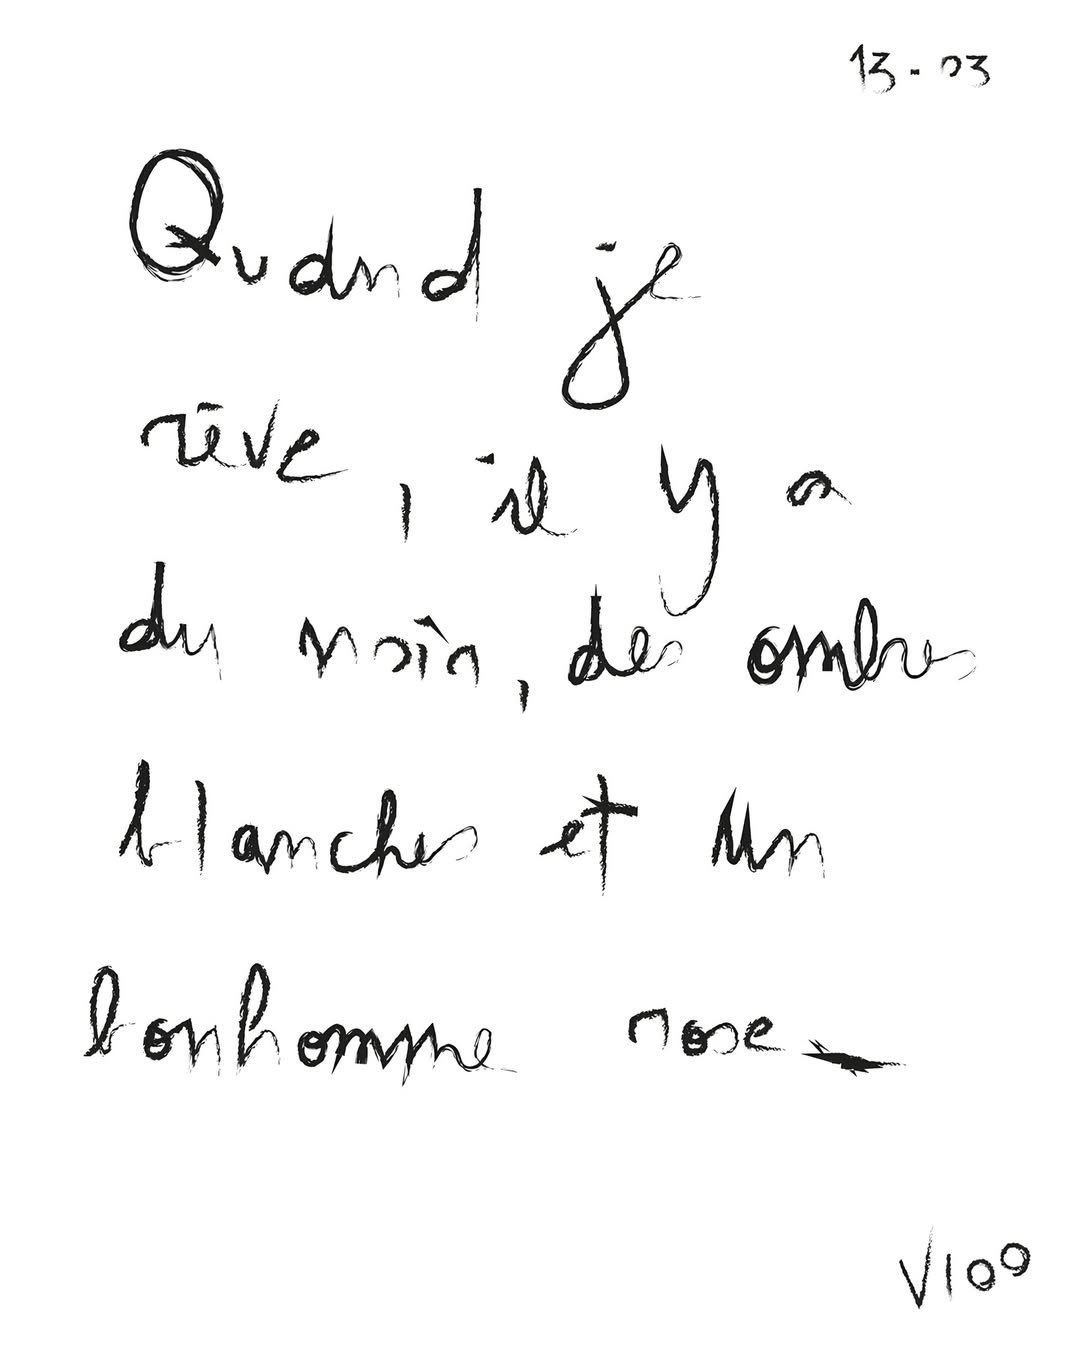 13-03
Quand je
rêve, il y a
du noir, des ombres
blanches et un
bonhomme rose
V100